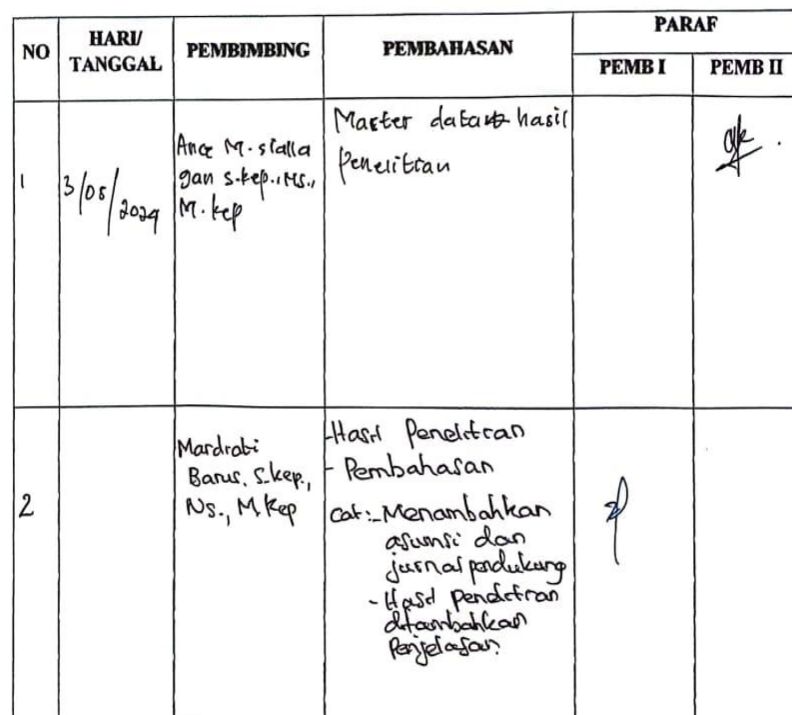 NO HARI/ TANGGAL PEMBIMBING PEMBAHASAN PARAF
PEMB I PEMB II
1
3/05/2024
Ance M. sialla
gan s.kep., Ns.,
M. kep
Master data hasil
Penelitian
2
Mardiati
Barus, S.kep.,
Ns., M.Kep
-Hasil Penelitian
- Pembahasan
cat:-Menambahkan
asumsi dan
jurnal pendukung
- Hasil Penelitian
ditambahkan
Penjelasan.